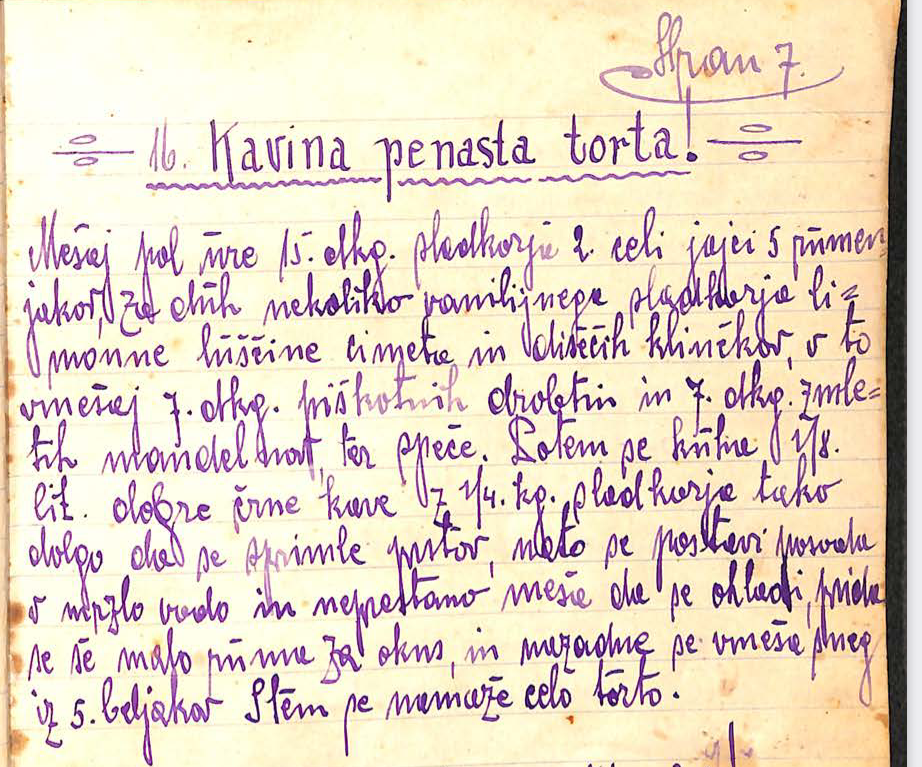 Stran 7.
16. Kavina penasta torta!
Mešaj pol ure 15. dkg. sladkorja 2. celi jajci 5 rumen=
jakov, za duh nekoliko vanilijnega sladkorja li=
monine lušćine cimeta in dišećih klinčkov, v to
vmešaj 7. dkg. piškotnih drobtin in 7. dkg. zmle=
tih mandelnov, ter speče. Potem se kuha 1/8.
lit. dobre črne kave z 1/4. kg. sladkorja tako
dolgo da se sprimle prstov, nato se postavi posoda
v mrzlo vodo in neprestano meša da se ohladi, prida
se še malo ruma za okus, in nazadne se vmeša sneg
iz 5. beljakov Stem se namaže celo torto.